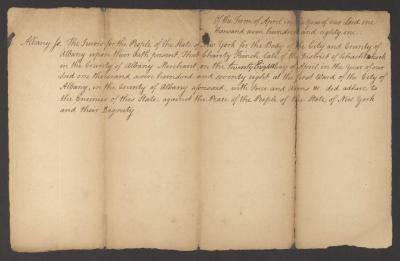 Of the Term of April in the year of our Lord one
thousand seven hundred and eighty one.
Albany Ss. The Jurors for the People of the State of New York for the Body of the City and County of
Albany upon their Oath present, That Charity French, late of the District of Schachtekook
in the County of Albany Merchant, on the twenty Eighth Day of April, in the Year of our
Lord one thousand seven hundred and seventy eight at the first Ward of the City of
Albany, in the County of Albany aforesaid, with Force and Arms &c did adhere to
the Enemies of this State, against the Peace of the People of the State of New York
and their Dignity